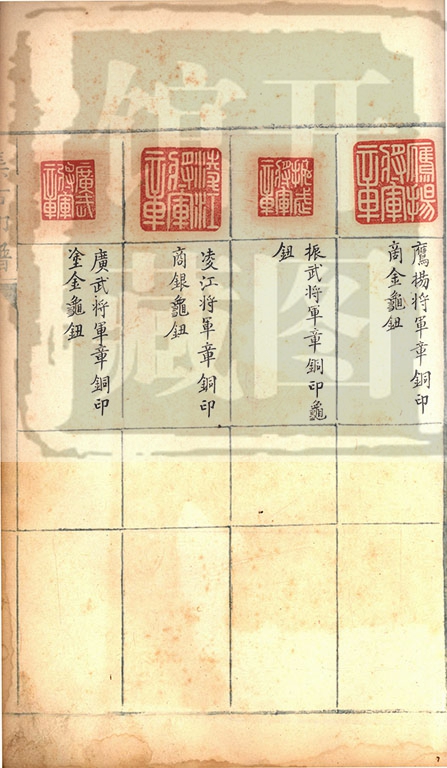 鷹揚將軍章
鷹揚將軍章銅印
商金龜鈕
振武將軍章
振武將軍章銅印龜
鈕
淩江將軍章
凌江將軍章銅印
商銀龜鈕
廣武將軍章
廣武將軍章銅印
塗金龜鈕